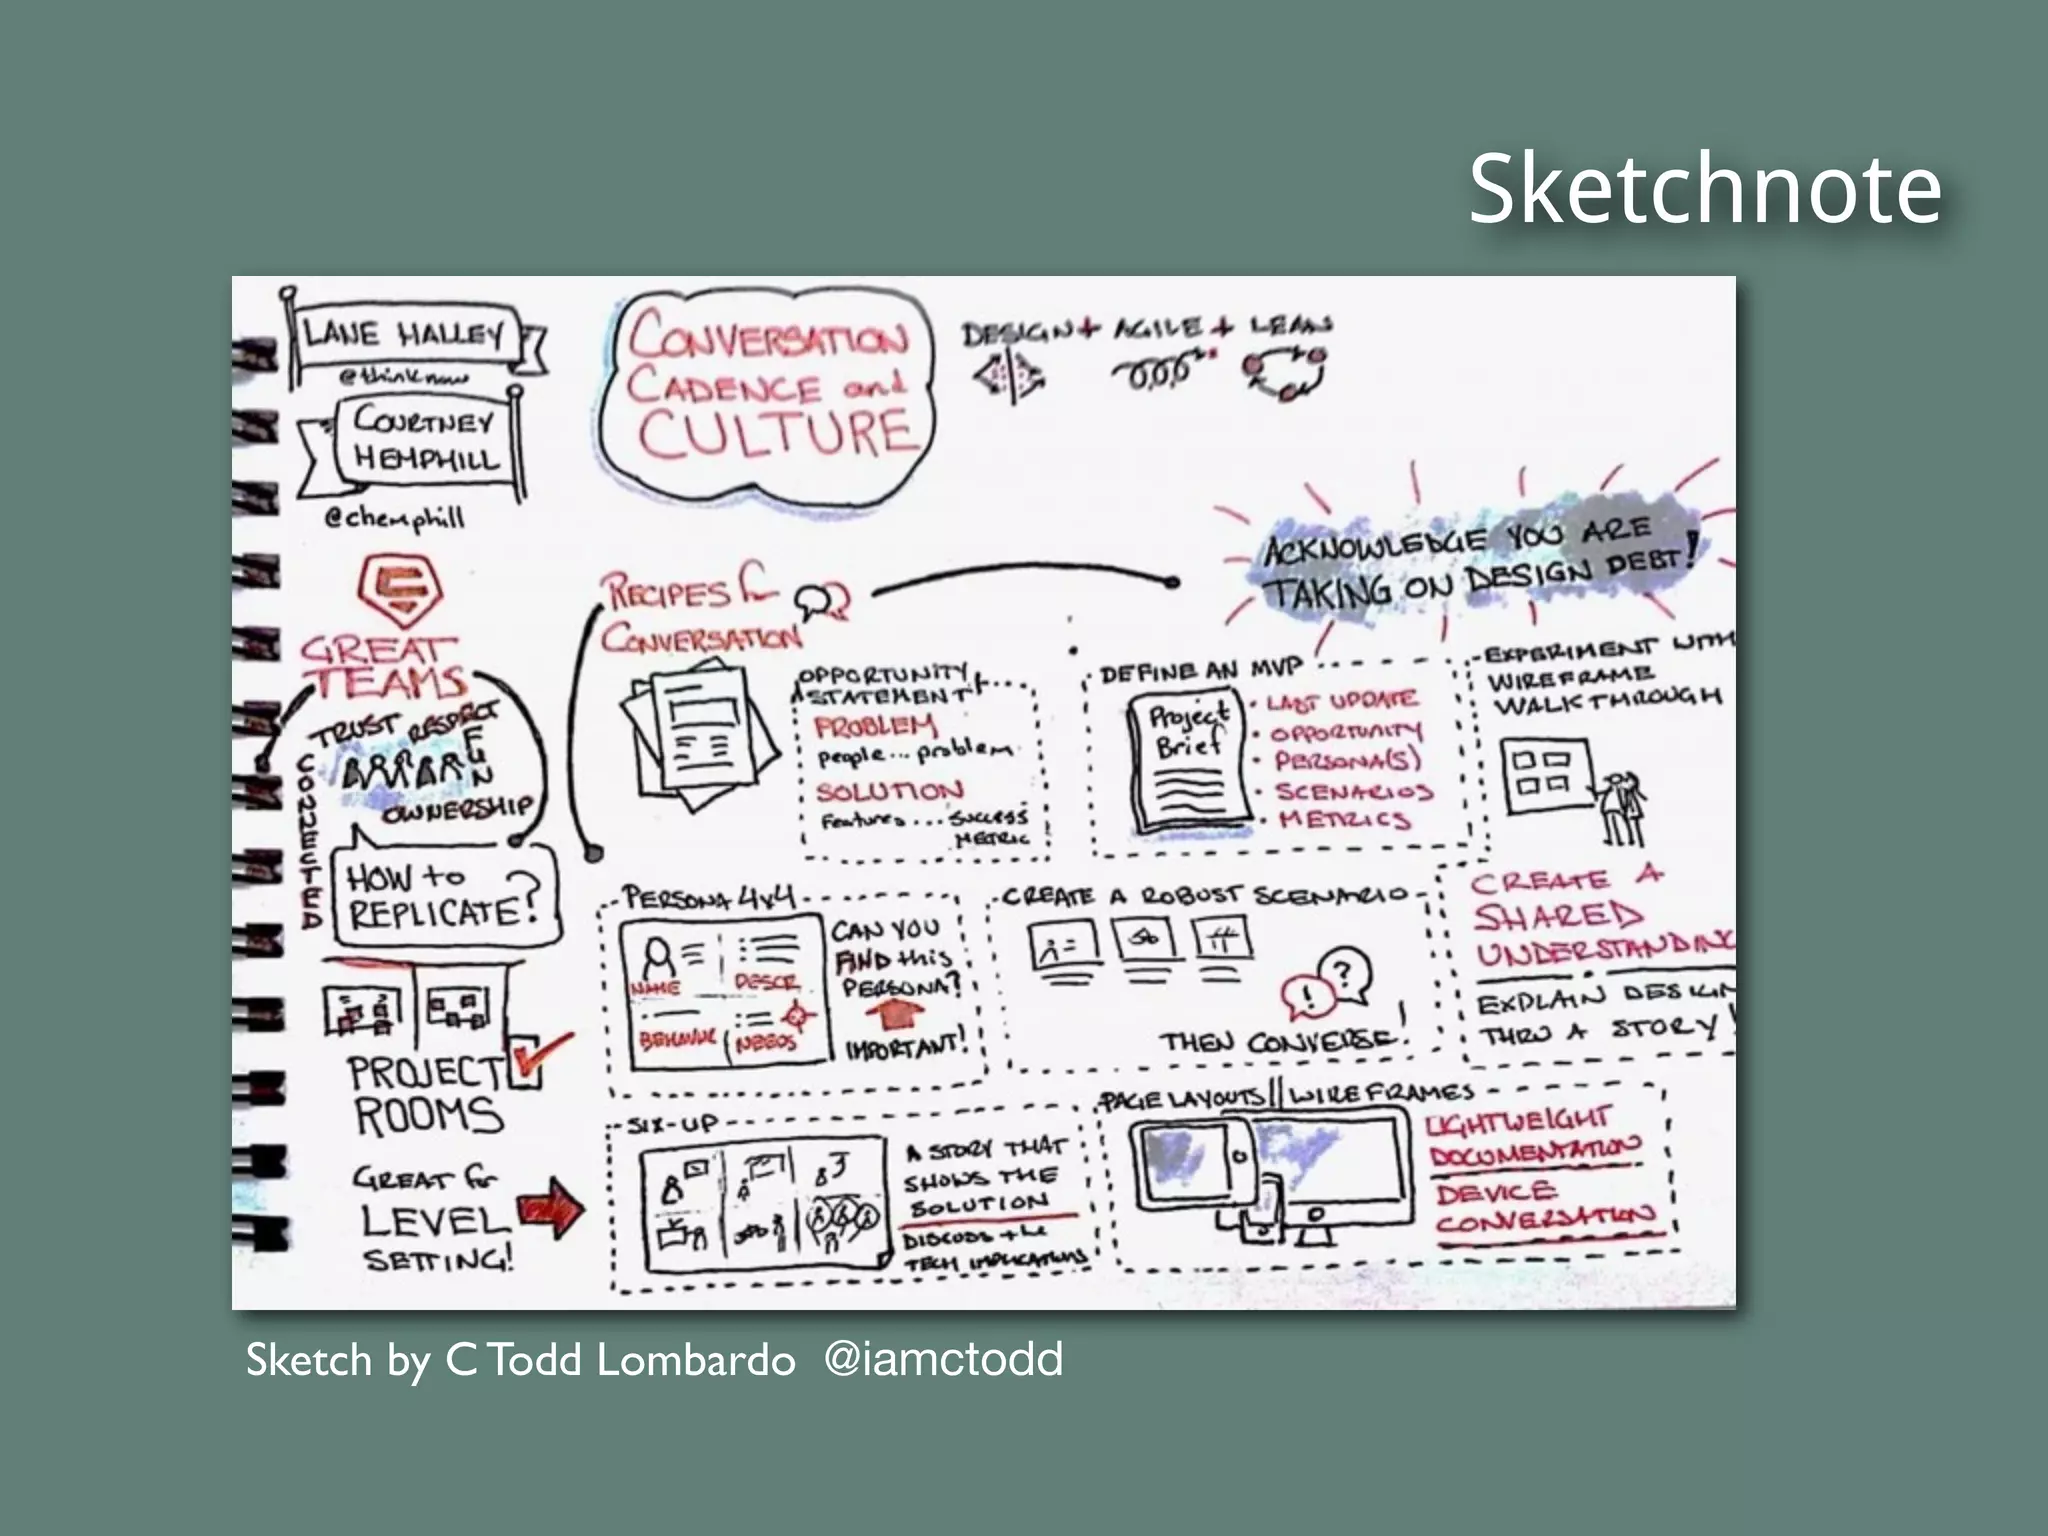 Sketchnote
LANE HALLEY
@thinknow
COURTNEY
HEMPHILL
@chemphill
CONVERSATION
CADENCE and
CULTURE
DESIGN + AGILE + LEAN
ACKNOWLEDGE YOU ARE
TAKING ON DESIGN DEBT!
GREAT
TEAMS
TRUST RESPECT
FUN
OWNERSHIP
CONNECTED
HOW to
REPLICATE?
PROJECT
ROOMS
GREAT for
LEVEL
SETTING!
RECIPES for
CONVERSATION
OPPORTUNITY
STATEMENT
PROBLEM
people... problem
SOLUTION
Features... SUCCESS
METRIC
DEFINE AN MVP
Project
Brief
• LAST UPDATE
• OPPORTUNITY
• PERSONA(S)
• SCENARIOS
• METRICS
EXPERIMENT WITH
WIREFRAME
WALKTHROUGH
CREATE A
SHARED
UNDERSTANDING
EXPLAIN DESIGN
THRU A STORY!
PERSONA 4x4
NAME
DESCR
NEEDS
CAN YOU
FIND this
PERSONA?
IMPORTANT!
CREATE A ROBUST SCENARIO
! ?
THEN CONVERSE!
SIX-UP
A STORY THAT
SHOWS THE
SOLUTION
DISCUSS the
TECH IMPLICATIONS
PAGE LAYOUTS || WIREFRAMES
LIGHTWEIGHT
DOCUMENTATION
DEVICE
CONVERSATION
Sketch by C Todd Lombardo @iamctodd